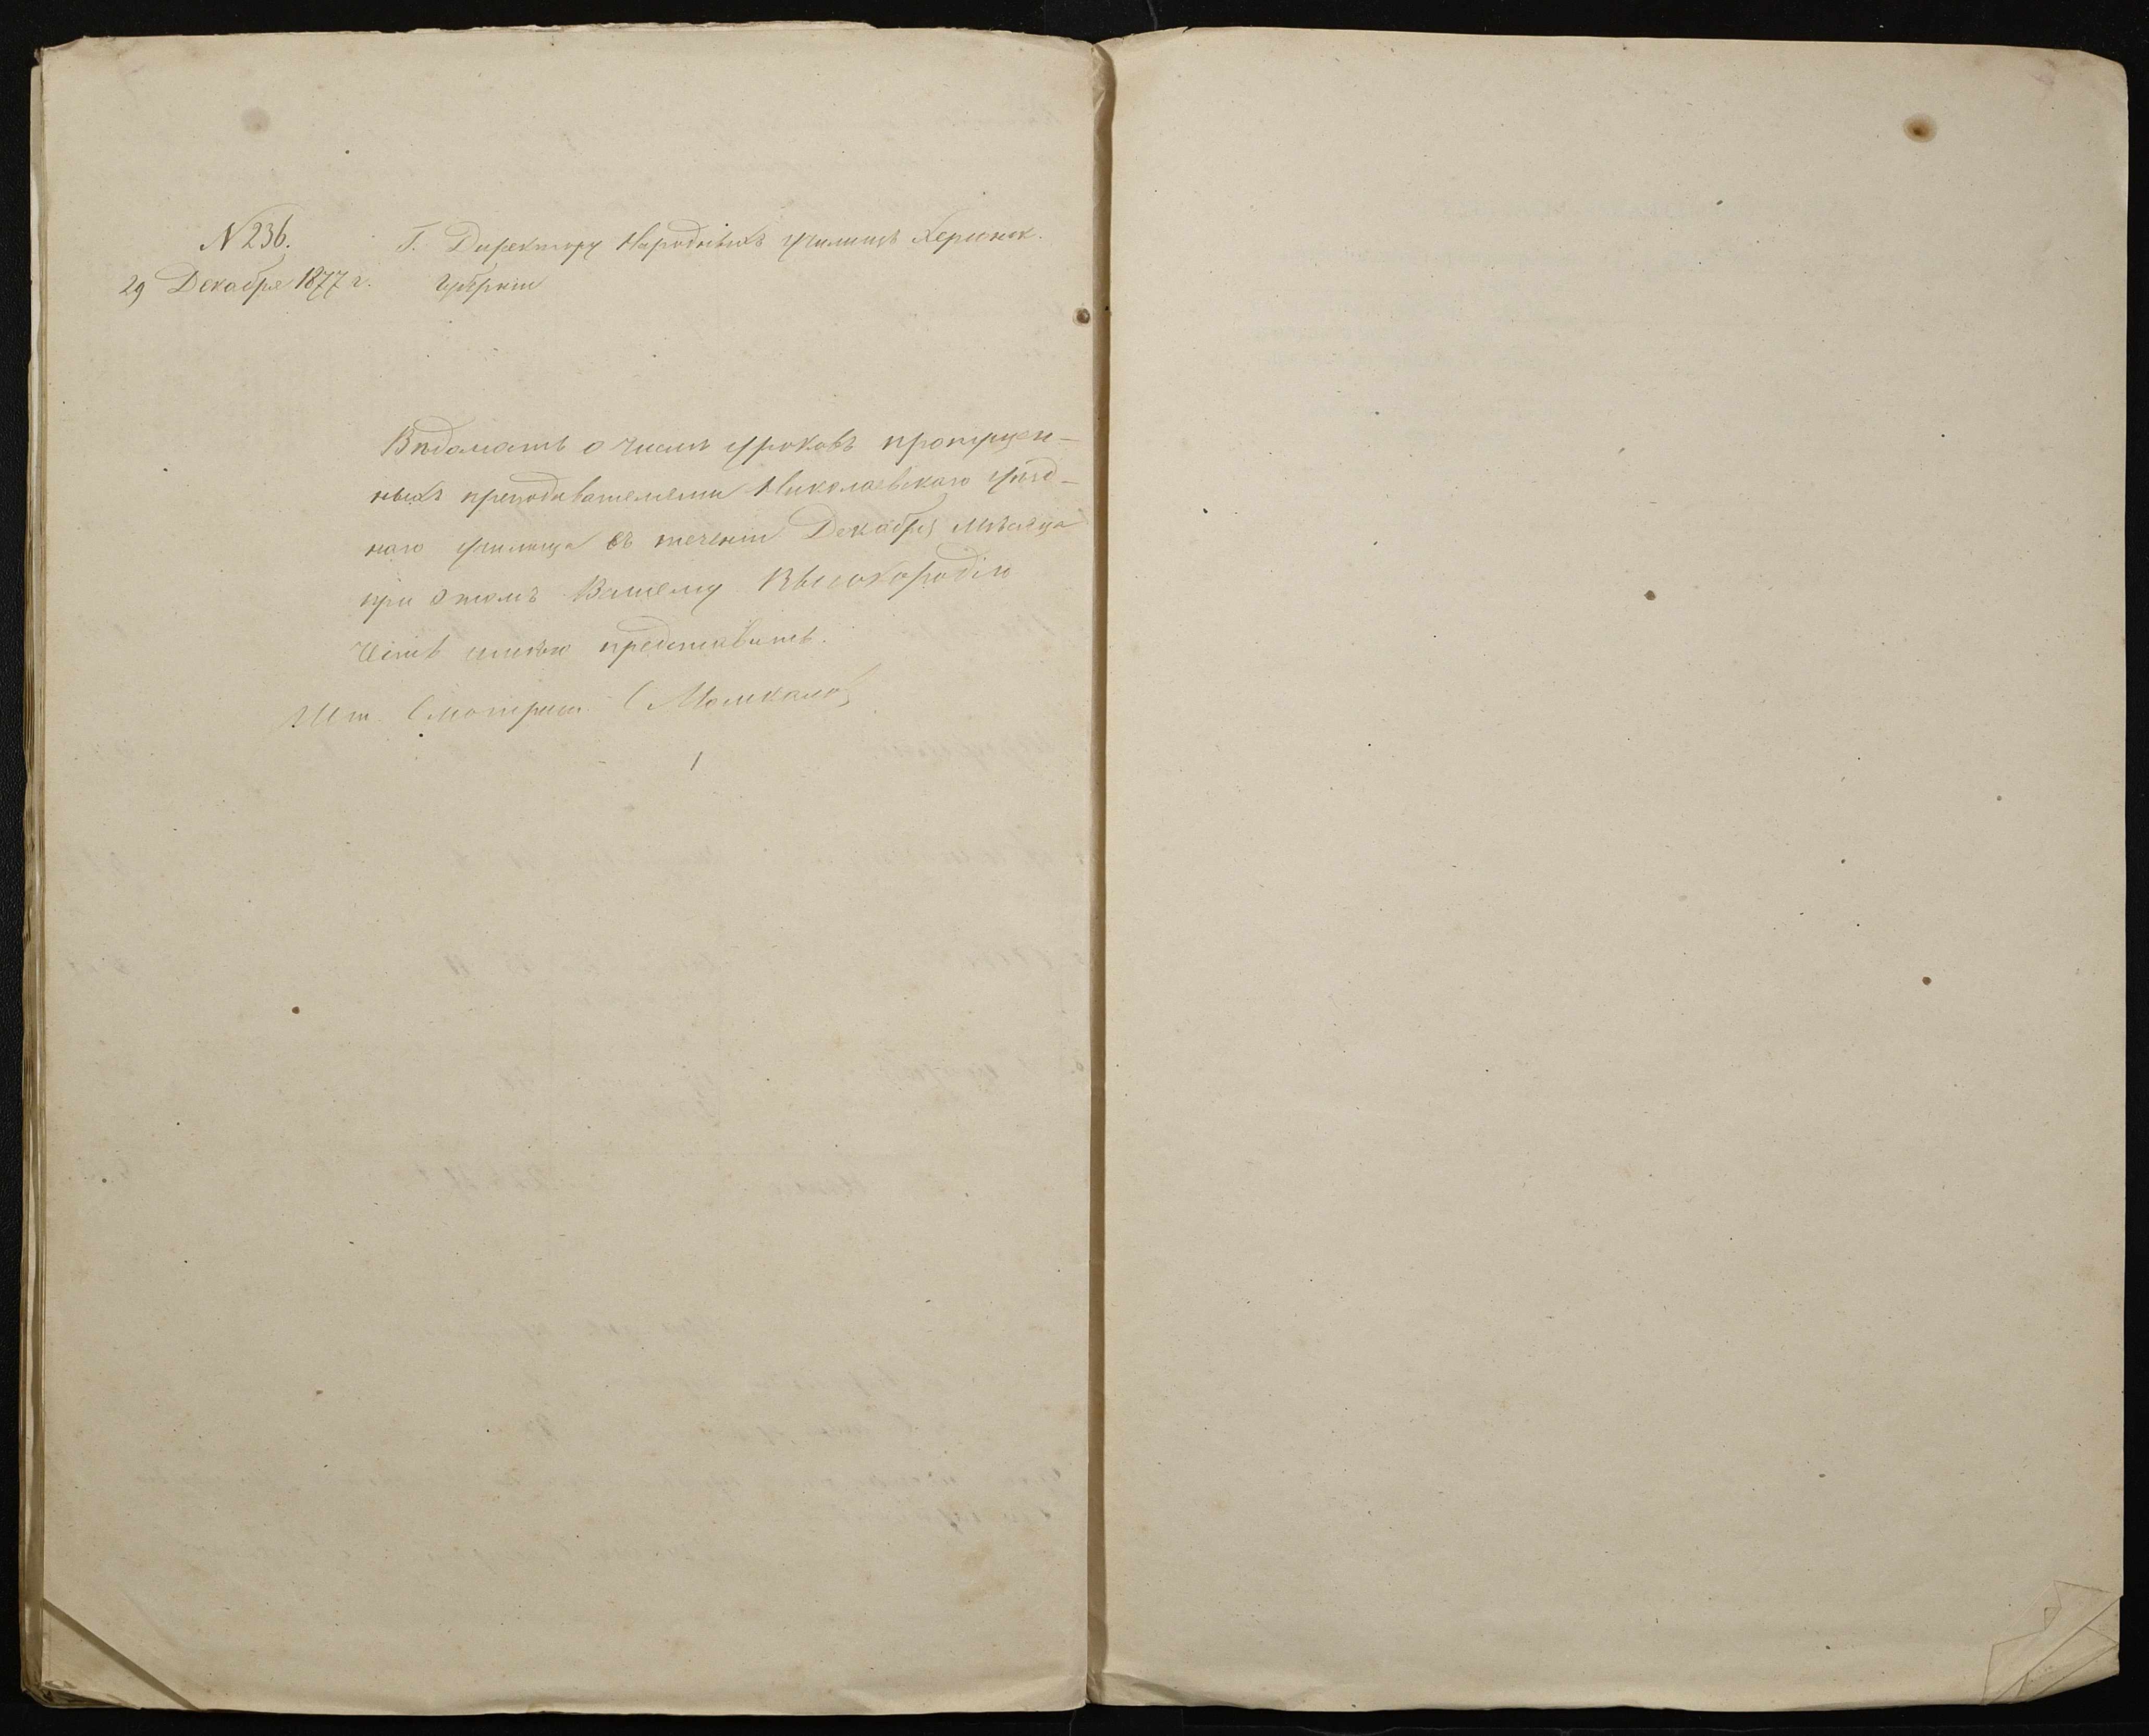 N 236.
29 Декабря 1877 г.
Г. Директору Народныхъ училищъ Херсонск.
Губерніи
Вѣдомость о числѣ уроковъ пропущен-
ныхъ преподавателями Николаевскаго уѣзд-
наго училища въ теченіи Декабря мѣсяца
при этомъ Вашему Высокородію
честь имѣю представить.
Шт. Смотрит.